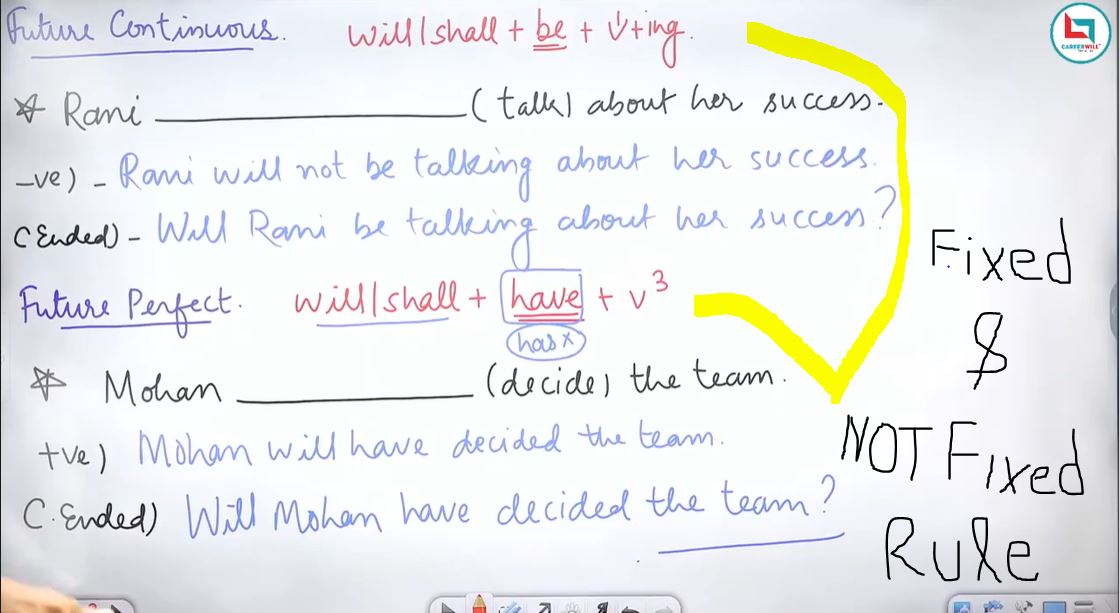 Future Continuous. will/shall + be + V¹+ing.
☆ Rani ____________ (talk) about her success.
-ve) - Rani will not be talking about her success.
C Ended) - Will Rani be talking about her success?
Future Perfect. will/shall + have + v³
has x
☆ Mohan ____________ (decide) the team.
+ve) Mohan will have decided the team.
C. Ended) Will Mohan have decided the team?
Fixed
$
NOT Fixed
Rule
CAREERWILL